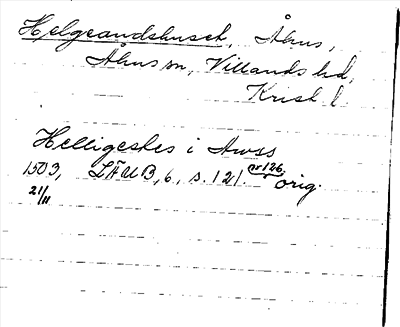 Helgeandshuset, Åhus,
Åhus sn, Villands hd,
Krist. l.
Helligestes i Awss
1503, LÄUB, 6, s. 121. nr 126, orig.
21/11